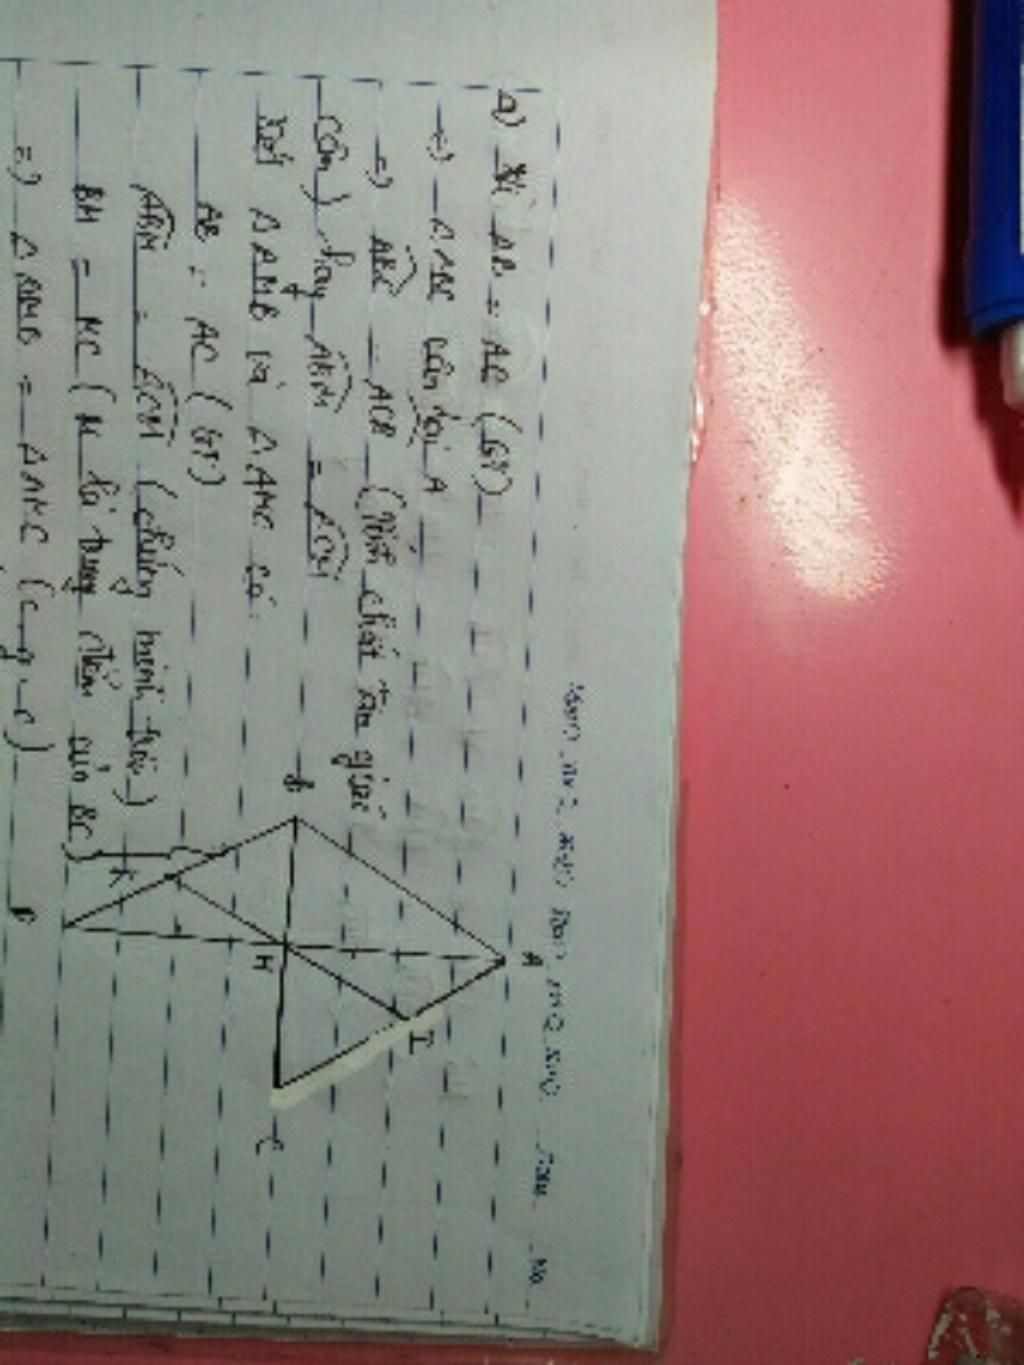 a) Vì AB = AC (GT)
=) ΔABC cân tại A
=) ABC = ACB (tính chất tam giác
cân) hay ABM = ACM
Xét ΔAMB và ΔAMC có:
AB = AC (GT)
ABM = ACM (chứng minh trên)
BM = MC (M là trung điểm của BC)
=) ΔAMB = ΔAMC (c-g-c)
A
I
B
M
C
K
D
No.